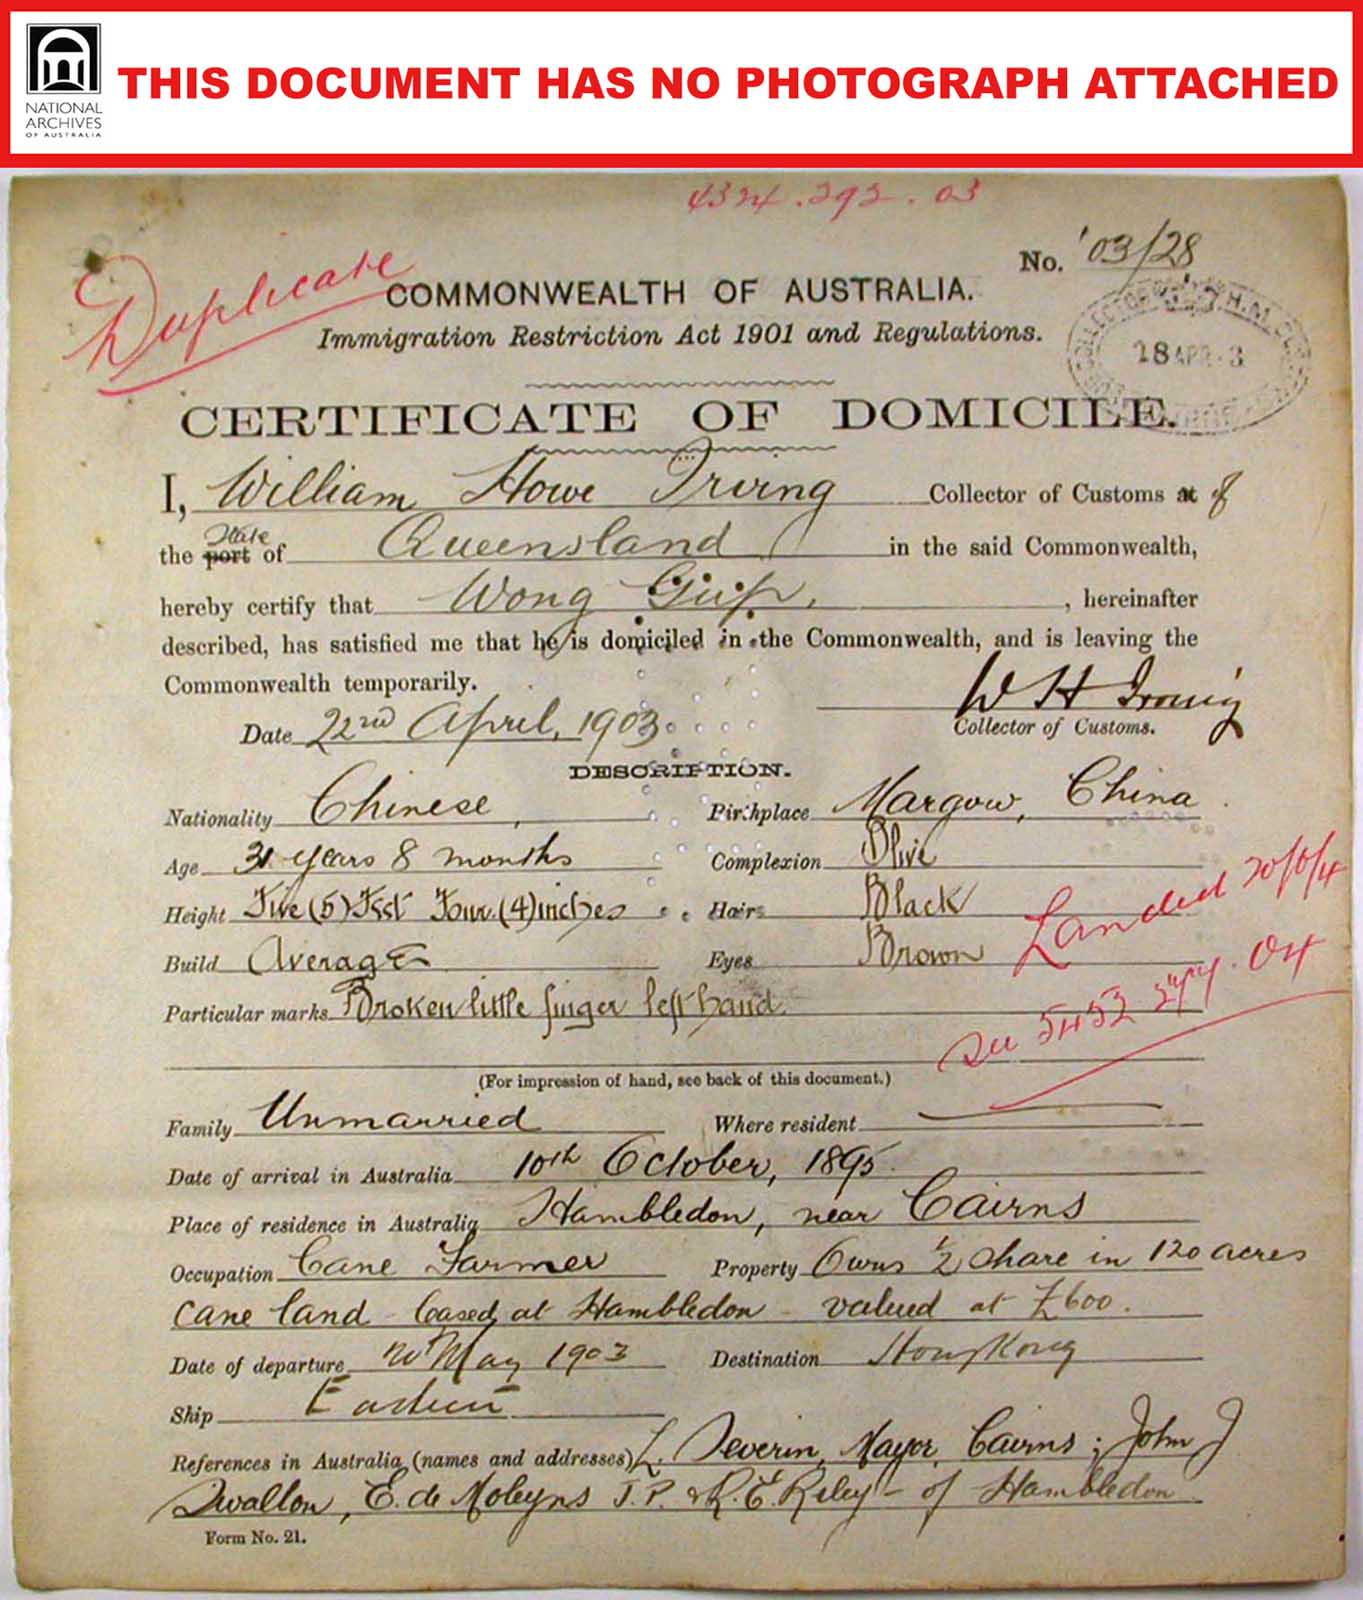 NATIONAL
ARCHIVES
OF AUSTRALIA
THIS DOCUMENT HAS NO PHOTOGRAPH ATTACHED
4324.292.03
Duplicate
No. '03/28
COMMONWEALTH OF AUSTRALIA.
Immigration Restriction Act 1901 and Regulations.
COLLECTOR H.M.
28 APR. 3
CERTIFICATE OF DOMICILE.
I, William Howe Irving Collector of Customs at of
State
the port of Queensland in the said Commonwealth,
hereby certify that Wong Giip, , hereinafter
described, has satisfied me that he is domiciled in the Commonwealth, and is leaving the
Commonwealth temporarily.
W H Irving
Date 22nd April, 1903. Collector of Customs.
DESCRIPTION.
Nationality Chinese, Birthplace Margow, China
Age 31 years 8 months Complexion Olive
Height Five (5) Feet Four (4) inches Hair Black
Landed 20/6/4
Build Average Eyes Brown
Particular marks Broken little finger left hand.
See 5453 04
(For impression of hand, see back of this document.)
Family Unmarried Where resident
Date of arrival in Australia 10th October, 1895.
Place of residence in Australia Hambledon, near Cairns
Occupation Cane Farmer Property Owns 1/2 share in 120 acres
cane land - leased at Hambledon - valued at £600.
Date of departure May 1903 Destination HongKong
Ship Eastern
References in Australia (names and addresses) L. Severin, Mayor, Cairns; John J
Swallow, E. de Moleyns J.P. & R. E. Riley - of Hambledon
Form No. 21.